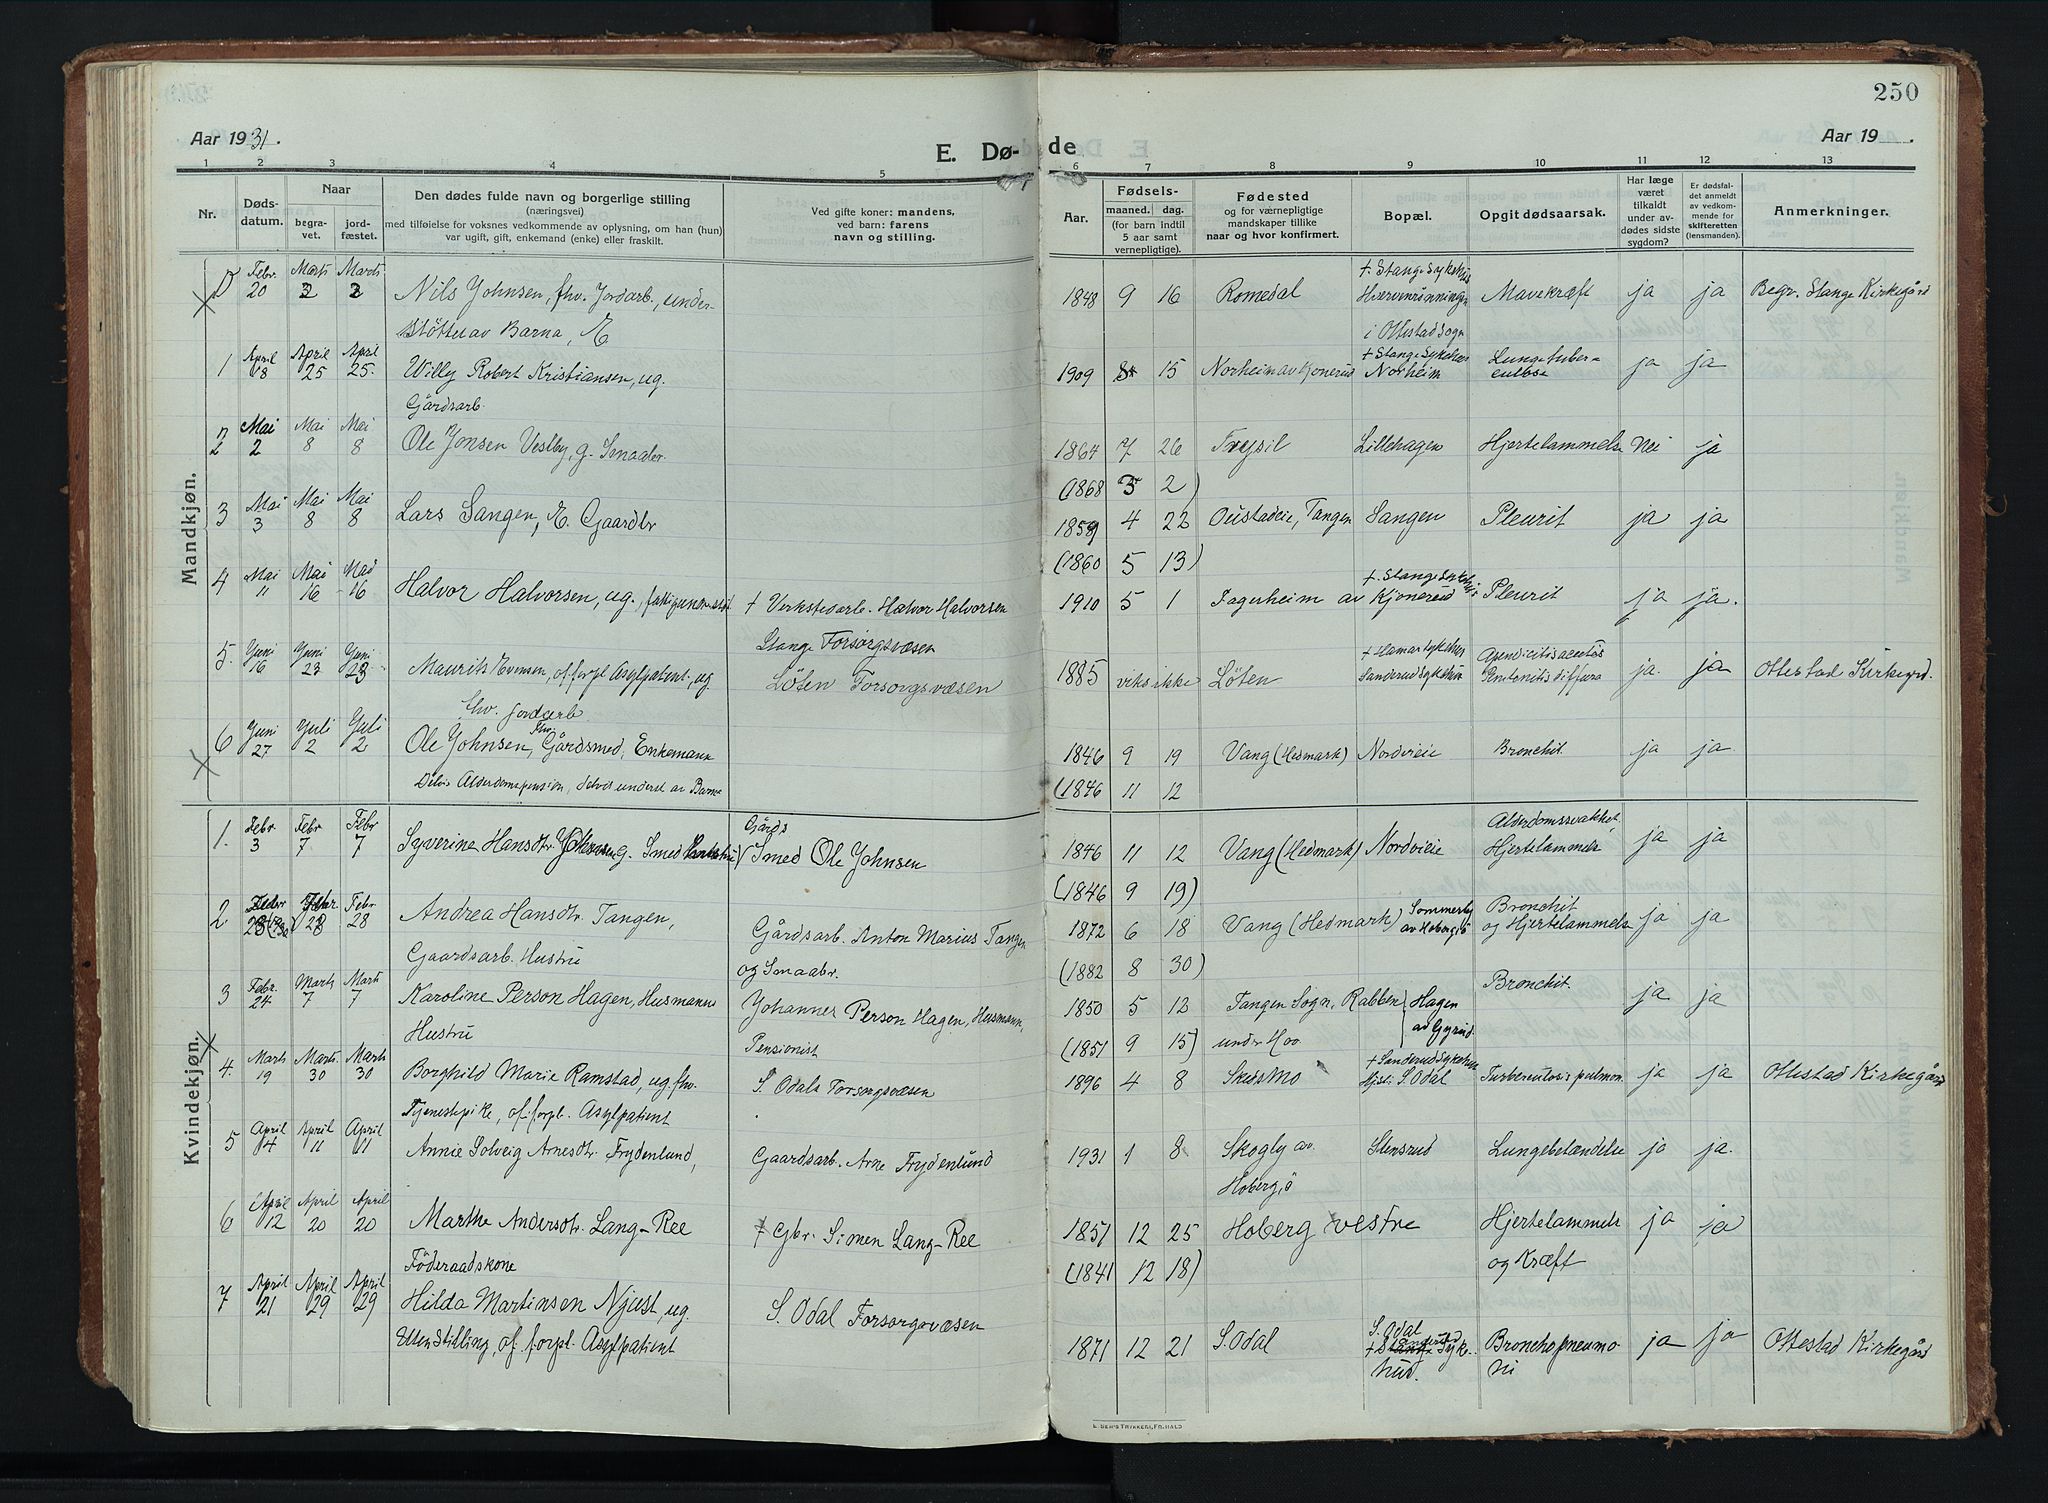 250
Aar 1931.
E. Dø-
de
Aar 19 .
1 2 3 4 5 6 7 8 9 10 11 12 13
Nr.
Døds-
datum.
Naar
begra-
vet.
jord-
fæstet.
Den dødes fulde navn og borgerlige stilling
(næringsvei)
med tilføielse for voksnes vedkommende av oplysning, om han (hun)
var ugift, gift, enkemand (enke) eller fraskilt.
Ved gifte koner: mandens,
ved barn: farens
navn og stilling.
Aar.
Fødsels-
maaned. dag.
(for barn indtil
5 aar samt
vernepligtige).
Fødested
og for værnepligtige
mandskaper tillike
naar og hvor konfirmert.
Bopæl.
Opgit dødsaarsak.
Har læge
været
tilkaldt
under av-
dødes sidste
sygdom?
Er dødsfal-
det anmeldt
av vedkom-
mende for
skifteretten
(lensmanden).
Anmerkninger.
Mandkjøn.
Febr. Marts Marts + Stange Sykehus
20 2 2 Nils Johnsen, fhv. Jordarb., under- 1848 9 16 Romedal i Ottestad sogn Mavekræft ja ja Begr. Stange Kirkegård
støttet av Barna, E
April April April + Stange Sykehus Lungetuber-
1 18 25 25 Willy Robert Kristiansen, ug. 1909 15 Norheim av Kjonerud Norheim culose ja ja
Gårdsarb.
Mai Mai Mai
2 2 8 8 Ole Jonsen Vestby, g. Smaabr. 1864 7 26 Trysil Lillehagen Hjertelammelse Nei ja
(1868 5 2)
Mai Mai Mai
3 3 8 8 Lars Sangen, E. Gaardbr 1859 4 22 Oustadeie, Tangen Sangen Pleurit ja ja
(1860 5 13)
Mai Mai Mai + Stange Sykehus
4 11 16 16 Halvor Halvorsen, ug., fattigunderstøt + Verkstedarb. Halvor Halvorsen 1910 5 1 Fagerheim av Kjonerud Pleurit ja ja.
Stange Forsorgsvæsen
Juni Juni Juni + Hamar Sykehus
5. 16 23 23 Maurits Evensen, off. forpl. Asylpatient, ug. Løten Forsorgsvæsen 1885 vites ikke Løten Sanderud Sykehus ja. ja Ottestad Kirkegrd.
fhv. jordarb
Juni Juli Juli
6 27 2 2 Ole Johnsen, Fhv. Gårdsmed, Enkemann 1846 9 19 Vang (Hedmark) Nordvieie Bronchit. ja ja.
Delvis Alderdomspension, delvis underst. av Barna (1846 11 12
Kvindekjøn.
Febr Febr Febr Gårds Alderdomssvakhet,
1. 3 7 7 Syverine Hansdtr. Johnsen g. Smed Smed Ole Johnsen 1846 11 12 Vang (Hedmark) Nordvieie Hjertelammelse ja ja
(1846 9 19)
Febr Febr Febr Bronchit
2 28 28 Andrea Hansdtr. Tangen, Gårdsarb. Anton Marius Tangen 1872 6 18 Vang (Hedmark) Sommerby av Hobergsø og Hjertelammelse ja ja
Gaardsarb. Hustru og Smaabr. (1882 8 30)
Febr. Marts Marts
3 24 7 7 Karoline Person Hagen, Husmanns Johannes Person Hagen, Husmann, 1850 5 12 Tangen Sogn, Rabben Hagen Bronchit ja ja
Hustru Pensionist (1851 9 15) under Hoo
Marts Marts Marts + Sanderud Sykehus
4. 19 30 30 Borghild Marie Ramstad, ug. fhv. S. Odals Forsorgsvæsen 1896 4 8 Skedsmo Hjst. S. Odal Turberculosis pulmon. ja ja Ottestad Kirkegård
Tjenestepike, of. forpl. Asylpatient
April April April
5 4 11 11 Annie Solveig Arnesdtr. Frydenlund, Gaardsarb. Arne Frydenlund 1931 1 8 Skogly av Stensrud Lungebetændelse ja ja.
Hobergsø
April April April
6 12 20 20 Marthe Andersdtr. Lang-Ree + Gbr. Simen Lang-Ree 1851 12 25 Hoberg vestre Hjertelammelse ja ja
Föderaadskone (1841 12 18) og Kræft
April April April
7 21 29 29 Hilda Martinsen Njust, ug. S. Odal Forsorgsvæsen
Uten Stilling, of. forpl. Asylpatient 1871 12 21 S. Odal S. Odal Bronchopneumo- ja ja Ottestad Kirkegård
ni
E. SEM'S TRYKKERI, FR.HALD